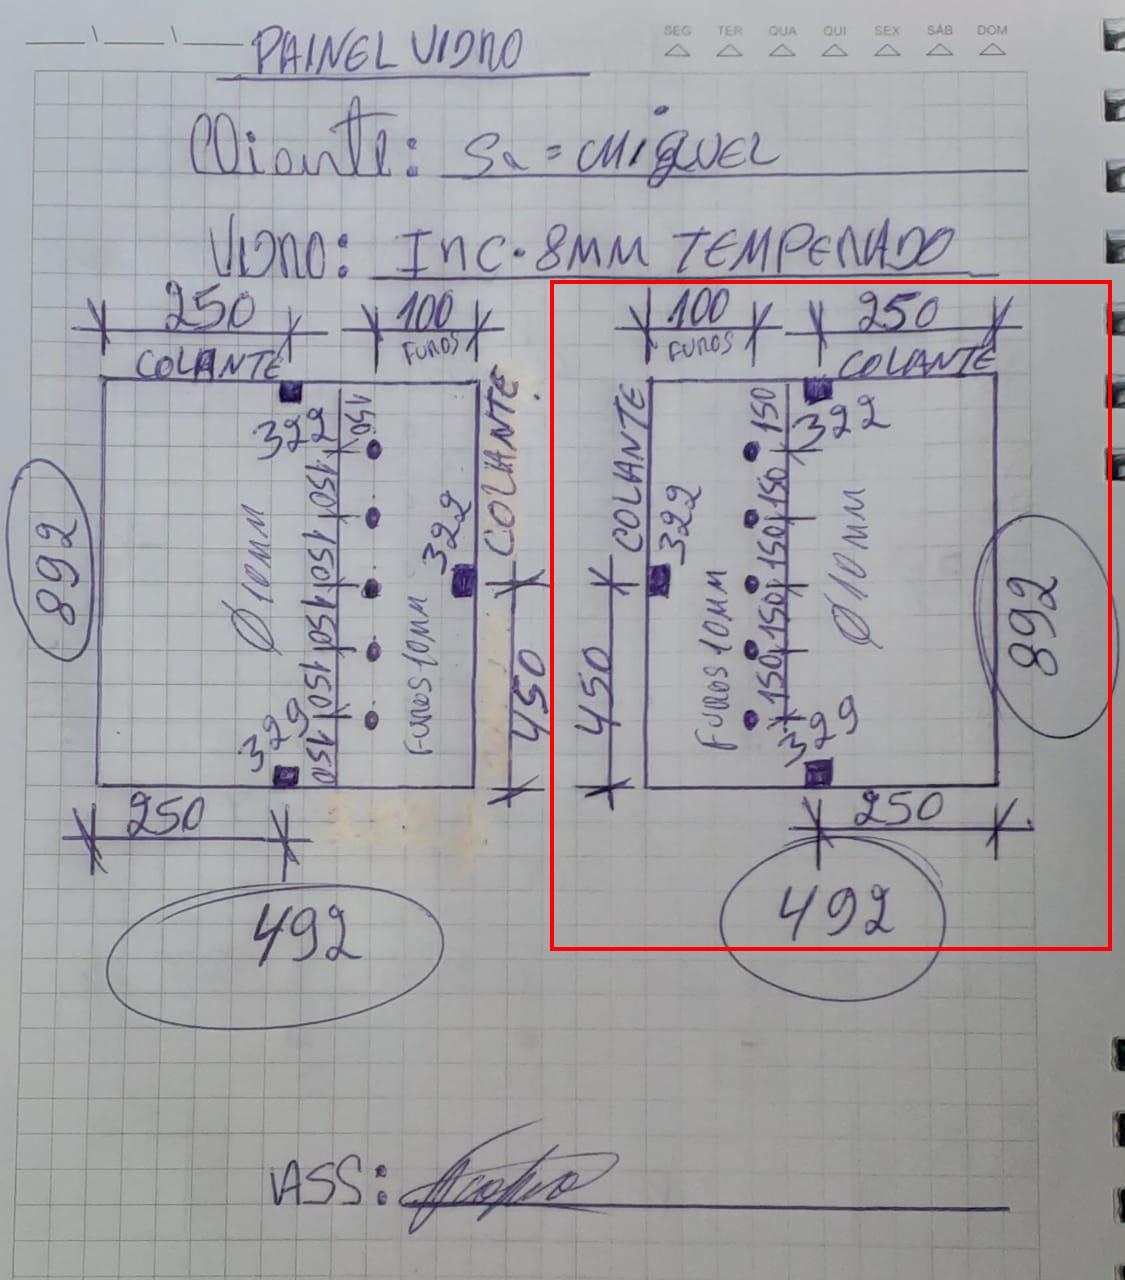 SEG TER QUA QUI SEX SÁB DOM
PAINEL VIDRO
Cliente: Sr = MIGUEL
VIDRO: INC. 8MM TEMPERADO
250 100 FUROS
COLANTE
322
150
150
150
150
150
150
Ø 10MM
892
322
COLANTE
FUROS 10MM
450
329
250
492
100 FUROS 250
COLANTE
COLANTE
322
150
150
150
150
150
Ø 10MM
892
322
FUROS 10MM
450
329
250
492
ASS: